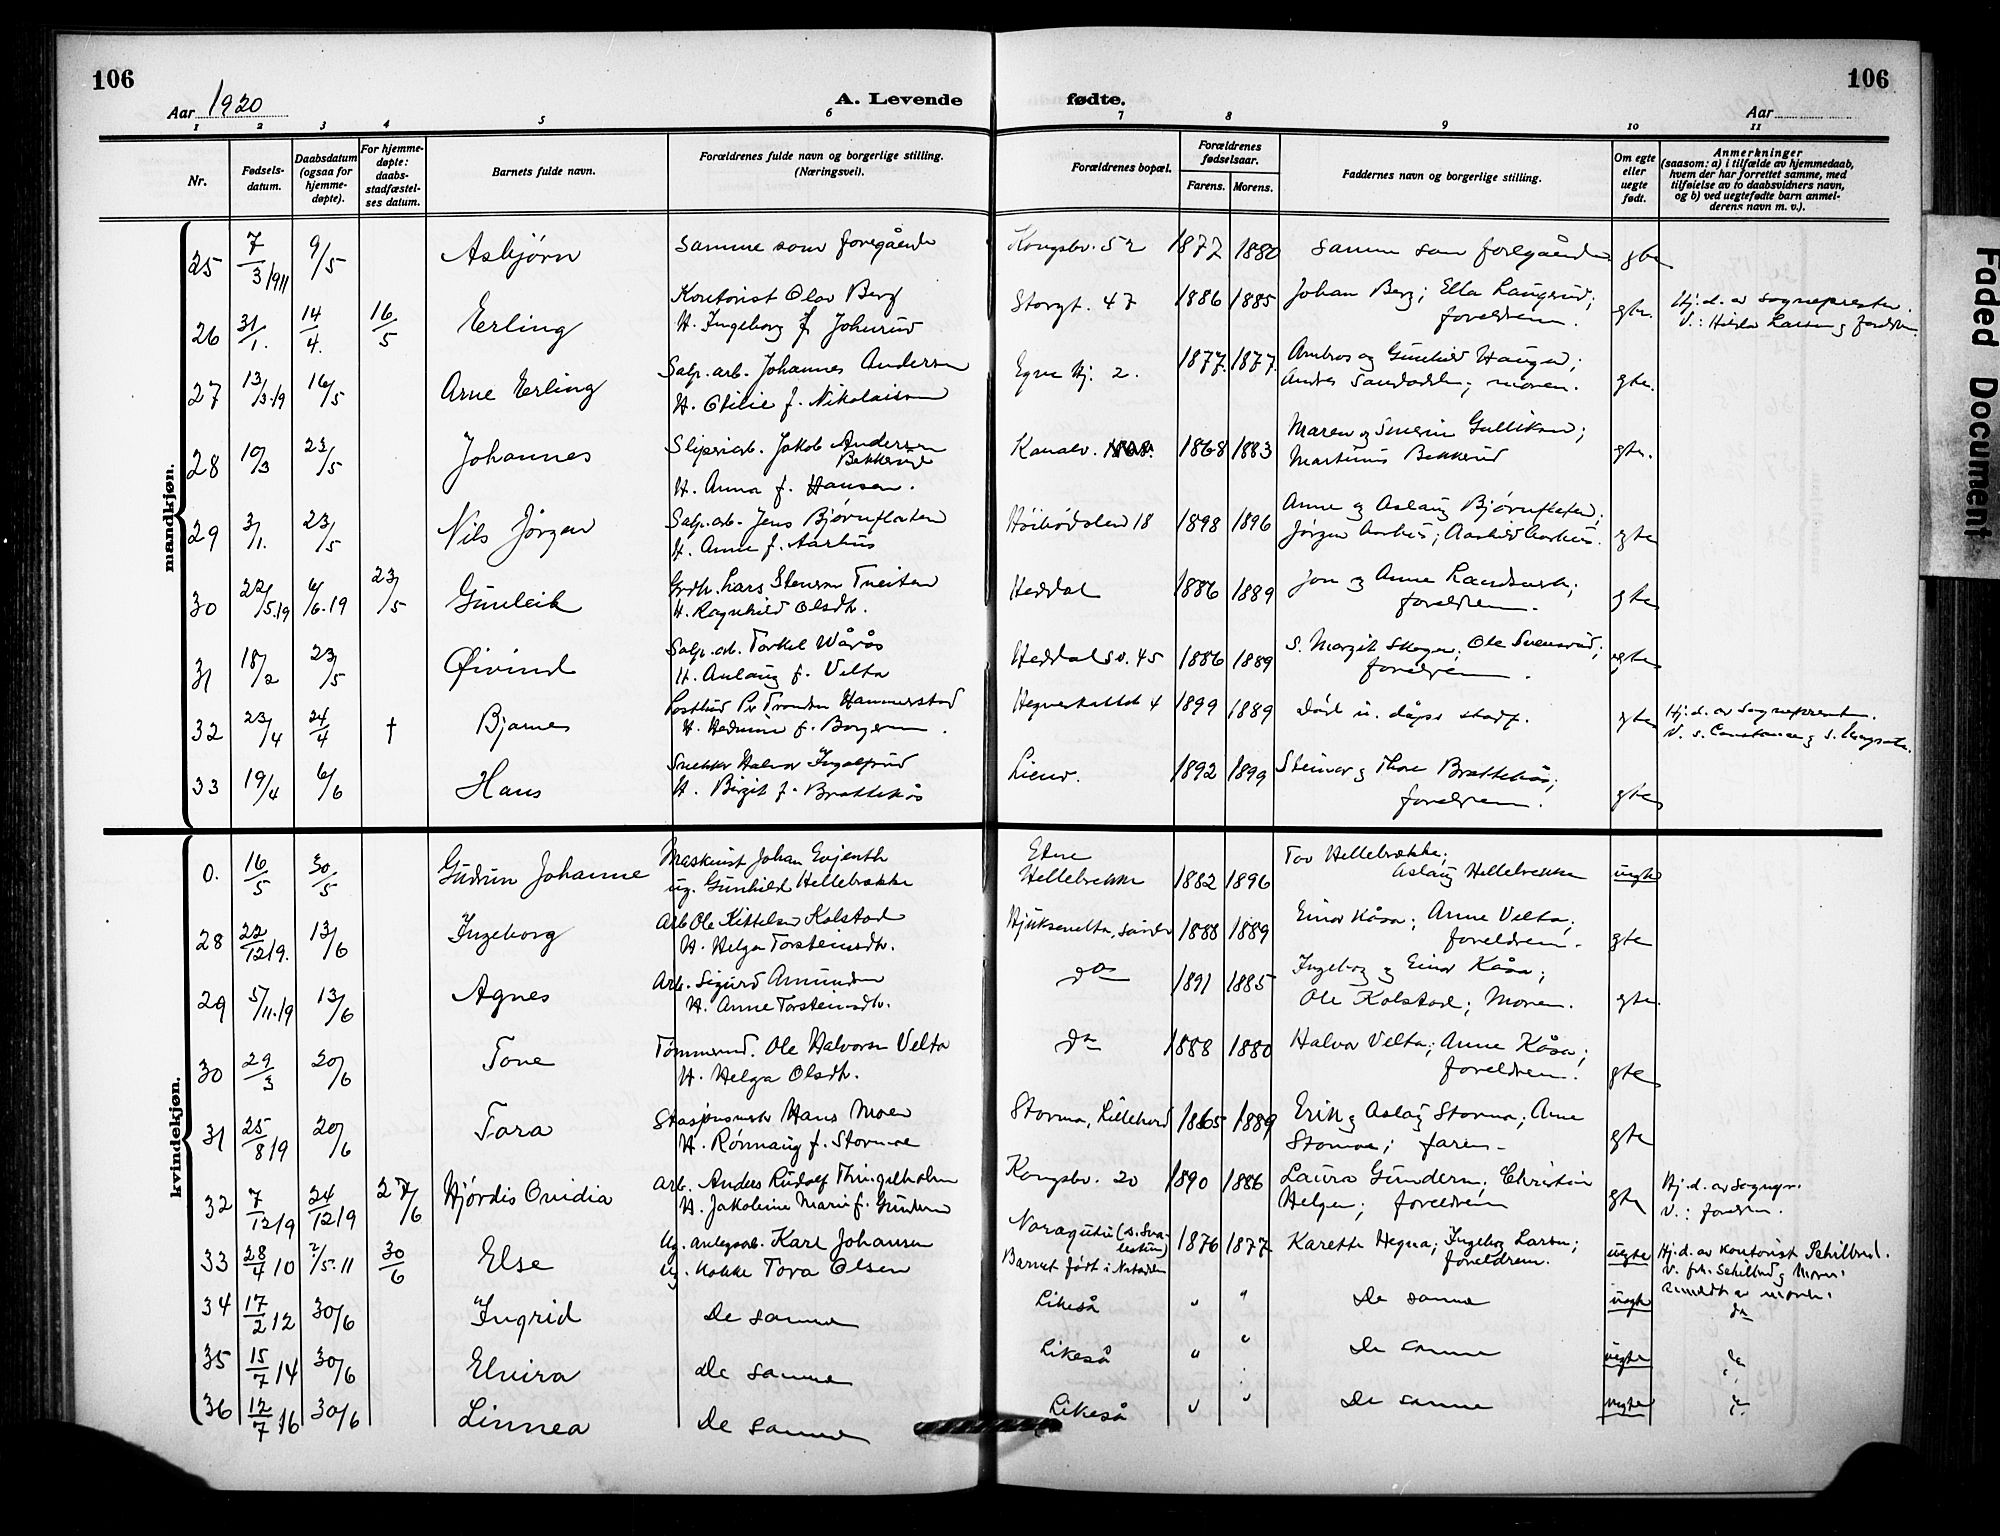 106
106
Aar 1920
A. Levende
fødte.
Aar
1 2 3 4 5 6 7 8 9 10 11
Nr.
Fødsels-
datum.
Daabsdatum
(ogsaa for
hjemme-
døpte).
For hjemme-
døpte:
daabs-
stadfæstel-
ses datum.
Barnets fulde navn.
Forældrenes fulde navn og borgerlige stilling.
(Næringsvei).
Forældrenes bopæl.
Forældrenes
fødselsaar.
Farens. Morens.
Faddernes navn og borgerlige stilling.
Om egte
eller
uegte
født.
Anmerkninger
(saasom: a) i tilfælde av hjemmedaab,
hvem der har forrettet samme, med
tilføielse av to daabsvidners navn,
og b) ved uegtefødte barn anmel-
derens navn m. v.).
mandkjøn.
25 7/3 1911 9/5 Asbjørn Samme som foregående Kongsbv. 52 1877 1880 samme som foregående gte
26 31/1. 14/4. 16/5 Erling Kontorist Olav Berg Storgt. 47 1886 1885 Johan Berg; Ella Laugerud; gte. Hj. d. av sognepresten
H. Ingeborg f. Johnsrud foreldrene. V.: Hilda Larsen og foreldrene
27 13/3.19 16/5 Arne Erling Salp. arb. Johannes Andersen Egne Hj. 2. 1877. 1877. Ambros og Gunhild Haugen; gte.
H. Otilie f. Nikolaisen moren.
28 10/3 23/5 Johannes Sliperiarb. Jakob Andersen Kanalv. 1868 1883 Maren og Gulliksen; gte.
Bekkerud Martinus Bekkerud
H. Anna f. Hansen.
29 3/1. 23/5 Nils Jørgen Salp. arb. Jens Bjørnflaten 18 1898 1896 Anne og Aslaug Bjørnflaten; gte
H. Anne f. Aarhus Jørgen Aarhus; Aashild Aarhus.
30 22/5.19 6/6.19 23/5 Gunleik Grdb. Lars Stensen Tveiten Heddal 1886 1889 Jon og Anne foreldrene. gte
H. Ragnhild Olsdtr.
31 18/2 23/5 Øivind Salp. arb. Torkel Wårås Heddalsv. 45 1886 1889 S. Margit Skogen; Ole Svensrud; gte
H. Aslaug f. Velta foreldrene.
32 23/4 24/4 † Bjarne Postbud Per Tronden Hammerstad 4 1899 1889 Død u. dåps stadf. gte Hj. d. av sognepresten.
H. f. Borgersen. V. s. Constance og s.
33 19/4 6/6 Hans Snekker Halvor Ingolfsrud Lienv. 1892 1899 Steinar og Thore Brattekås; gte
H. Birgit f. Brattekås foreldrene.
kvindekjøn.
0. 16/5 30/5 Gudrun Johanne Maskinist Johan Evjenth Etne 1882 1896 Tov Hellebrekke; uegte
ug. Gunhild Hellebrekke Hellebrekke Aslaug Hellebrekke
28 22/12 19. 13/6 Ingeborg Arb Ole Kittelsen Kolstad Hjuksevelta, Sauher 1888 1889 Einar Kåsa; Anne Velta; gte
H. Helga Torsteinsdtr. foreldrene.
29 5/11.19 13/6 Agnes Arb. Sigurd Amundsen do 1891 1885 Ingeborg og Einar Kåsa; gte.
H. Anne Torsteinsdtr. Ole Kolstad; Moren.
30 29/3 20/6 Tone Tømmermd. Ole Halvorsen Velta do 1888 1880 Halvor Velta; Anne Kåsa; gte
H. Helga Olsdtr. foreldrene.
31 25/8 19 20/6 Tora Stasjonsmester Hans Moen Stormo, Lilleherd 1865 1889 Erik og Aslaug Stormo; Arne gte
H. Rønnaug f. Stormoe Stormoe; faren.
32 7/12 19 24/12 19 27/6 Hjördis Ovidia Arb. Anders Rudolf Thingelholm Kongsbv. 20 1890 1886 Laura Gundersen; Christian gte Hj. d. av sognepr.
H. Jakobine Marie f. Gundersen Helgen; foreldrene V.: foreldrene.
33 28/4 10 7/5.11 30/6 Else Ug. anlegsarb. Karl Johansen 1876 1877 Karette Hegna; Ingeborg Larsen; uegte Hj. d. av kontorist Schilbred.
Ug. kokke Tora Olsen Barnet født i Notodden foreldrene. V. frk. Schilbred og Moren.
Anmeldt av moren.
34 17/2 12 30/6 Ingrid De samme Likeså " " De samme uegte do
35 15/7 14 30/6 Elvira De samme Likeså " " De samme uegte do
36 12/7 16 30/6 Linnea De samme Likeså " " De samme uegte do
Faded Document